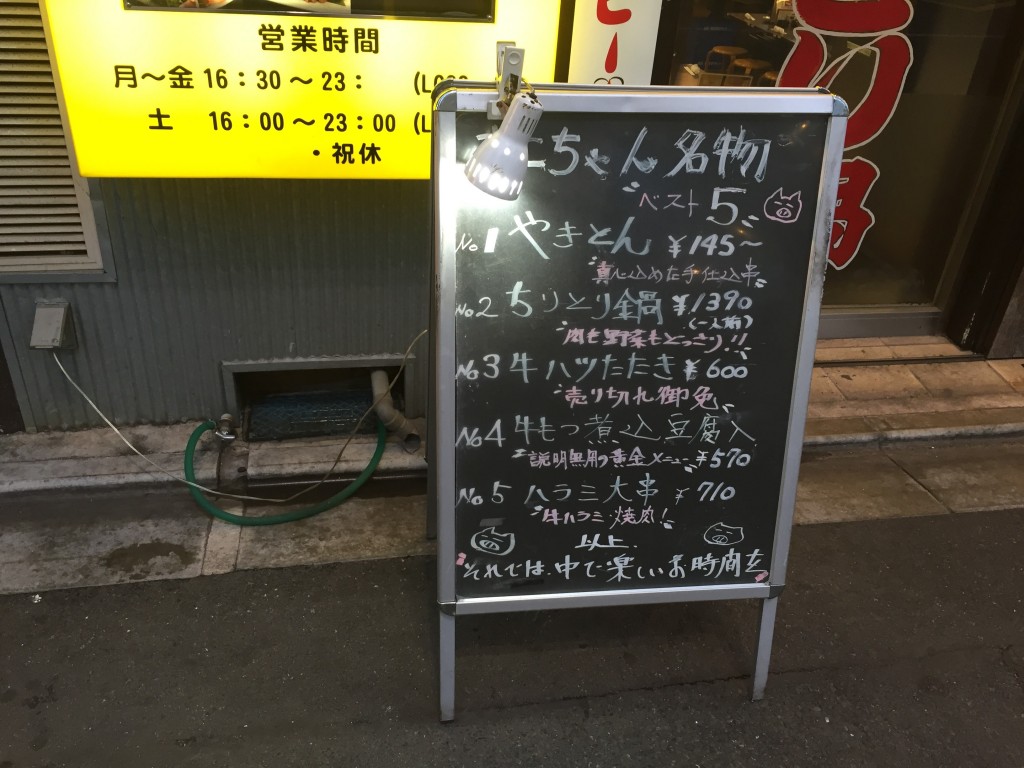 営業時間
月～金 16：30 ～ 23：
土 16：00 ～ 23：00
・祝休
こちゃん名物
"ベスト5"
No1 やきとん ¥145～
"真心込めた手仕込串"
No2 ちりとり鍋 ¥1390
(一人前)
"肉も野菜もどっさり!!"
No3 牛ハツたたき ¥600
"売り切れ御免"
No4 牛もつ煮込豆腐入
"説明無用の黄金メニュー" ¥570
No5 ハラミ大串 ¥710
"牛ハラミ焼肉!"
以上
"それでは、中で楽しいお時間を"